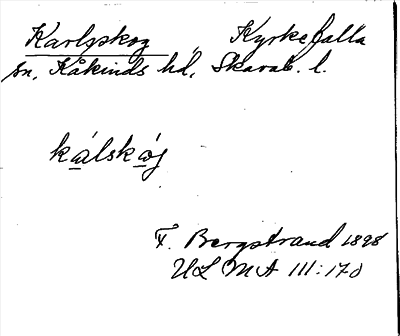 Karlskog, Kyrkefalla
sn, Kåkinds hd, Skarab. l.
kálskóg
F. Bergstrand 1898
ULMA 111:170